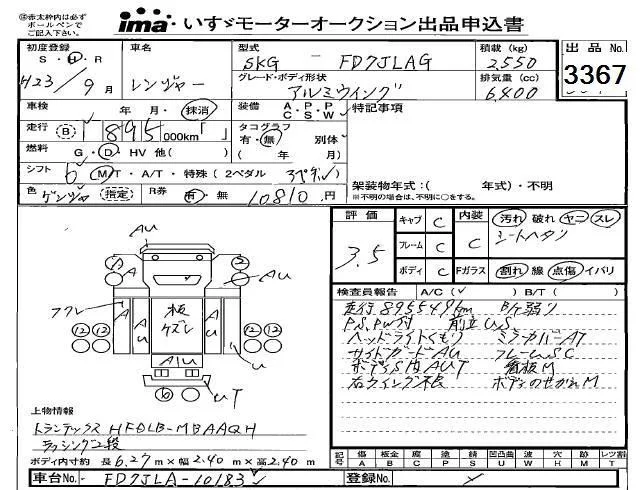 ※赤太枠内は必ず
ボールペンで
ご記入下さい。
ima いすゞモーターオークション出品申込書
初度登録 車名 型式 積載 (kg) 出品No.
S・H・R レンジャー SKG - FD7JLAG 2,550
H23/9月 グレード・ボディ形状 排気量 (cc) 3367
アルミウイング 6,400
車検 年・月・抹消 装備 A・P・P 特記事項
C・S・W
走行 B 895,000km「 」 タコグラフ
有・無 別体
燃料 G・D・HV 他( ) ( 年 月)
シフト 6 M/T・A/T・特殊 (2ペダル 3ペダル) 架装物年式:( 年式)・不明
色 ゲンジャ 指定 R券 有・無 10810円 ※不明の場合は、不明に○をする。
評価 キャブ C 内装 汚れ 破れ ヤニ スレ
3.5 フレーム C C シートヘタリ
ボディ C Fガラス 割れ 線 点傷 イバリ
検査員報告 A/C( ✓ ) B/T( )
走行895549km B/T弱リ
P.S, PW付 前立US
ヘッドライトくもり ミラカバーAT
サイドガードAU フレームSC
ボディS内AUT 看板M
右ウイング不良 ボディのせかえM
AU
A A 2
AU
フクレ A AU 板ケズレ AU A
12 12 12 12
U
A1U
UT
6
上物情報
トランテックス HFDLB-MBAAQH
ラッシング2段
ボディ内寸約 長6.27m×幅2.40m×高2.40m
記号 傷 板金 腐 塗 錆 凹凸曲 波 穴 跡 レツ割
A B C P S U W H M T
車台No. FD7JLA-10183 登録No.